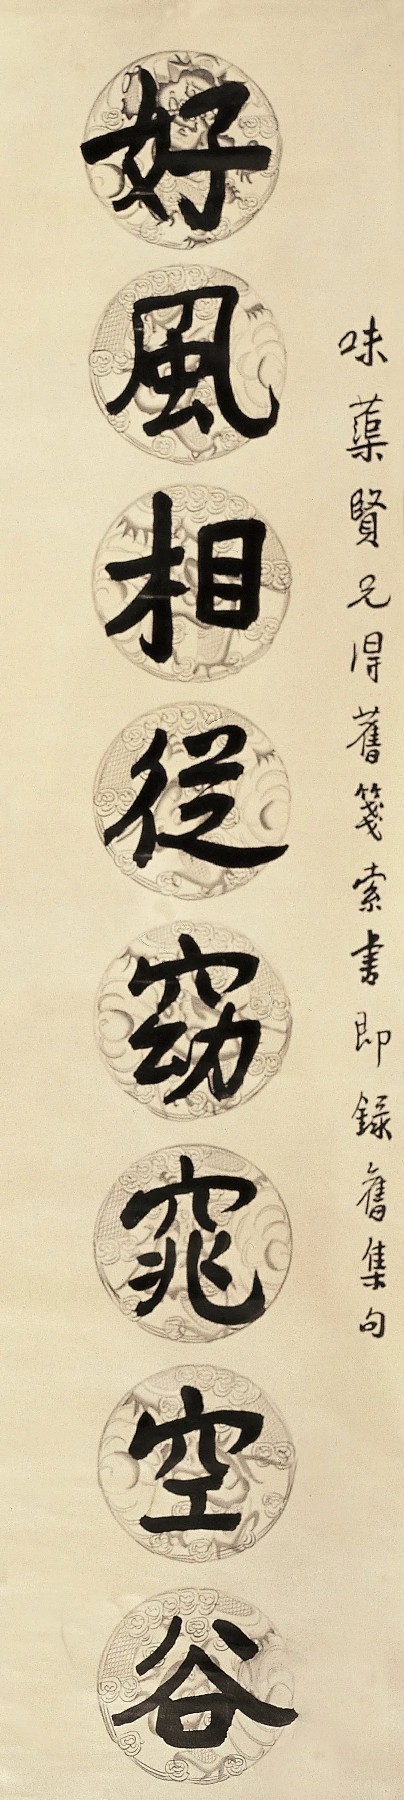 味蕖賢兄得舊箋索書即錄舊集句
好風相從窈窕空谷